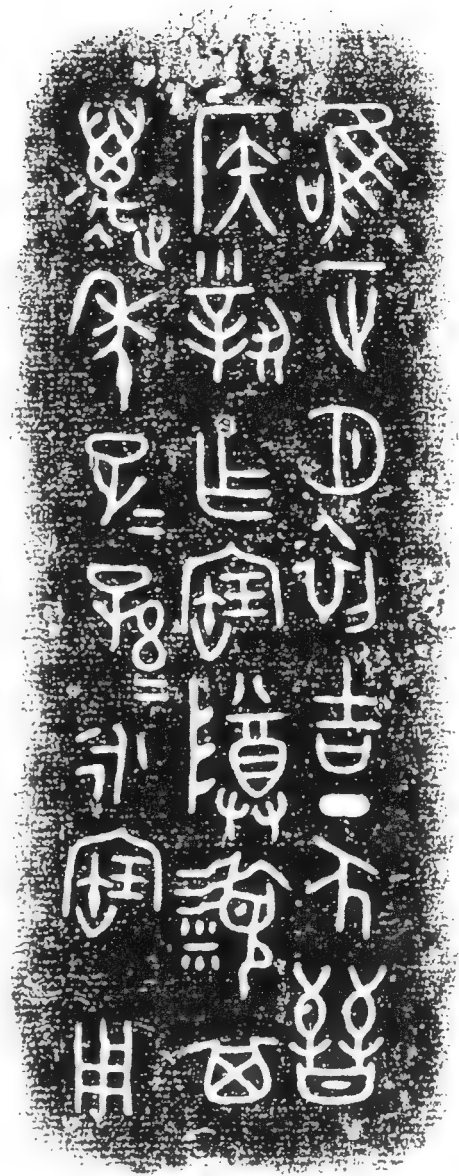 唯正月初吉丁亥
侯作寶尊彝其
萬年子＝孫＝永寶用